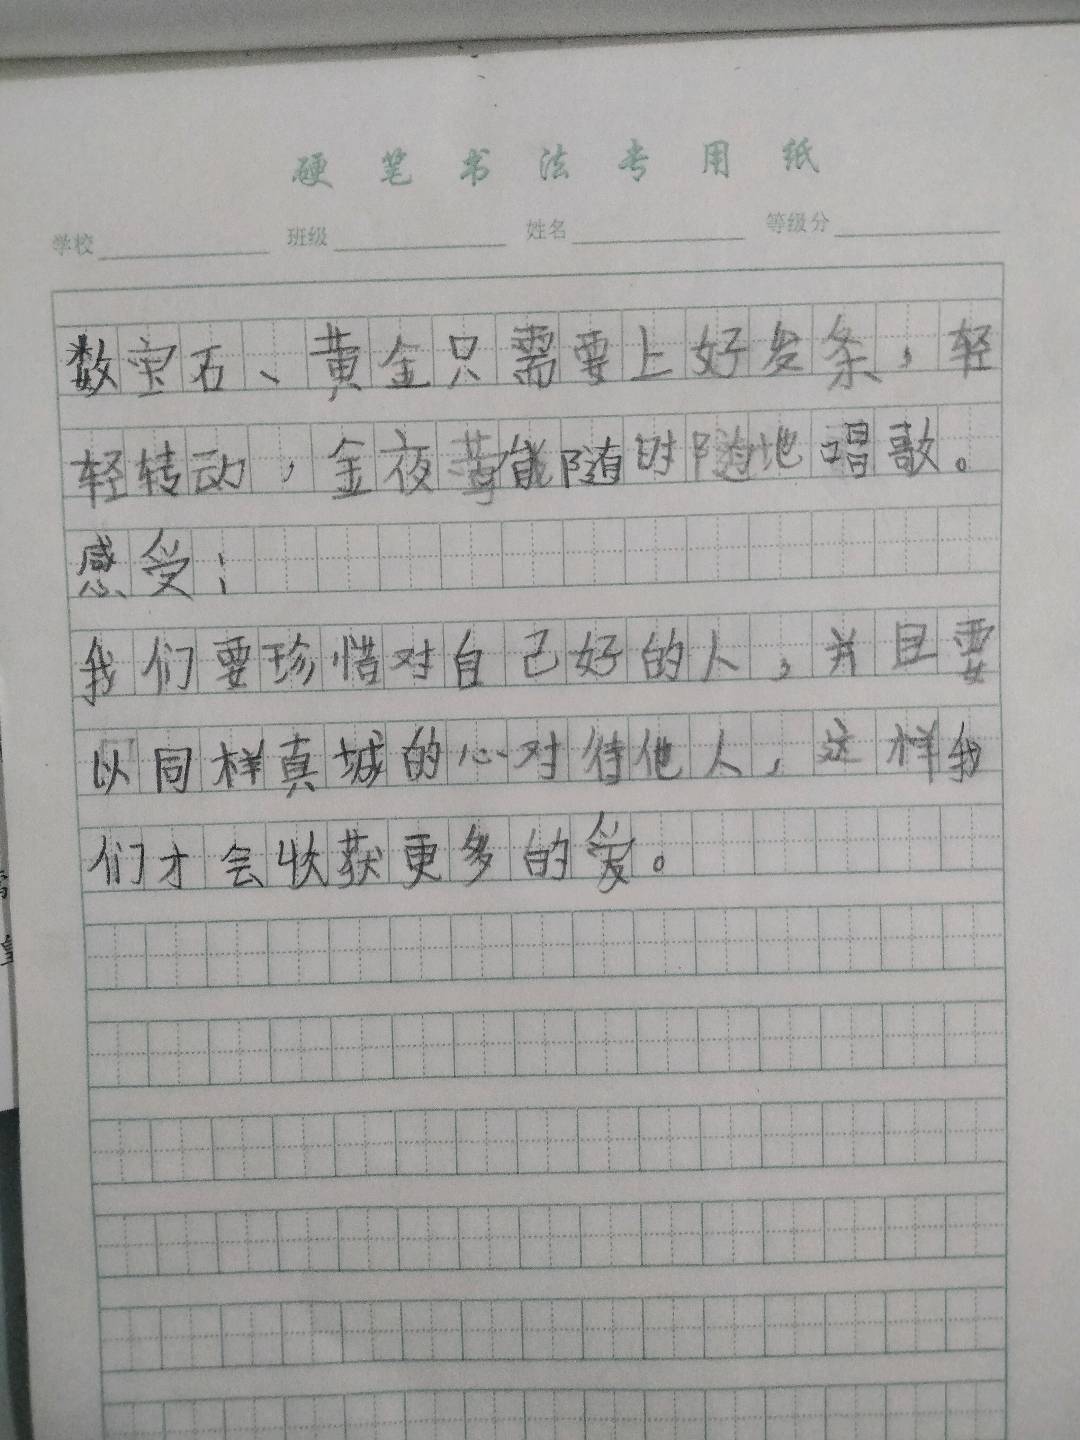 硬笔书法专用纸
学校 班级 姓名 等级分
数宝石、黄金只需要上好发条，轻
轻转动，金夜莺能随时随地唱歌。
感受：
我们要珍惜对自己好的人，并且要
以同样真城的心对待他人，这样我
们才会收获更多的爱。